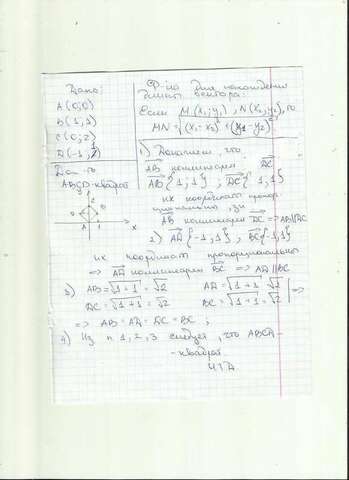 Дано:
A(0;0)
B(1;1)
C(0;2)
D(-1;1)
Док-ть
ABCD-квадрат
D
C
B
A
1
x
Ф-ла для нахождения
длины вектора:
Если M(x₁;y₁), N(x₂;y₂), то
MN = √(x₁-x₂)² + (y₁-y₂)²
1) Докажем, что
AB коллинеарен DC
AB{1;1}; DC{1;1}
их координаты пропор-
циональны,
AB коллинеарен DC => AB||DC
2) AD{-1;1}; BC{-1;1}
их координаты пропорциональны
=> AD коллинеарен BC => AD||BC
3) AB=√1+1=√2 AD=√1+1=√2
DC=√1+1=√2 BC=√1+1=√2 =>
=> AB=AD=DC=BC;
4) Из п 1,2,3 следует, что ABCD-
-квадрат
ч.т.д